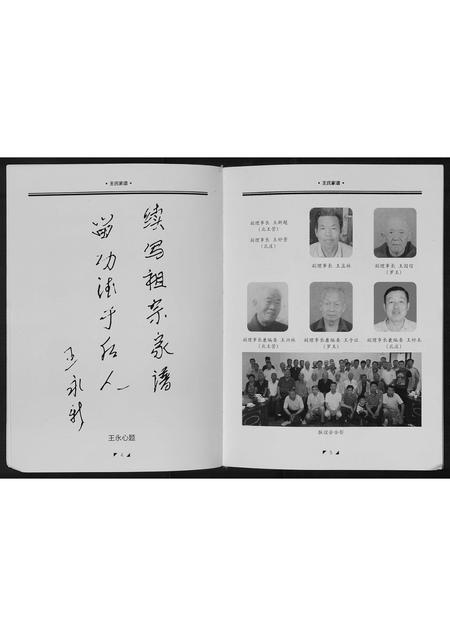 • 王氏家谱 •
续写祖宗家谱
留功德于后人
王永新
王永心题
4
• 王氏家谱 •
副理事长 王新超
(北王营)
副理事长 王好贵
副理事长 王孟林
副理事长 王国信
(罗王)
副理事长兼编委 王兴林
(北王营)
副理事长兼编委 王于江
(罗王)
副理事长兼编委 王好本
联谊会合影
5